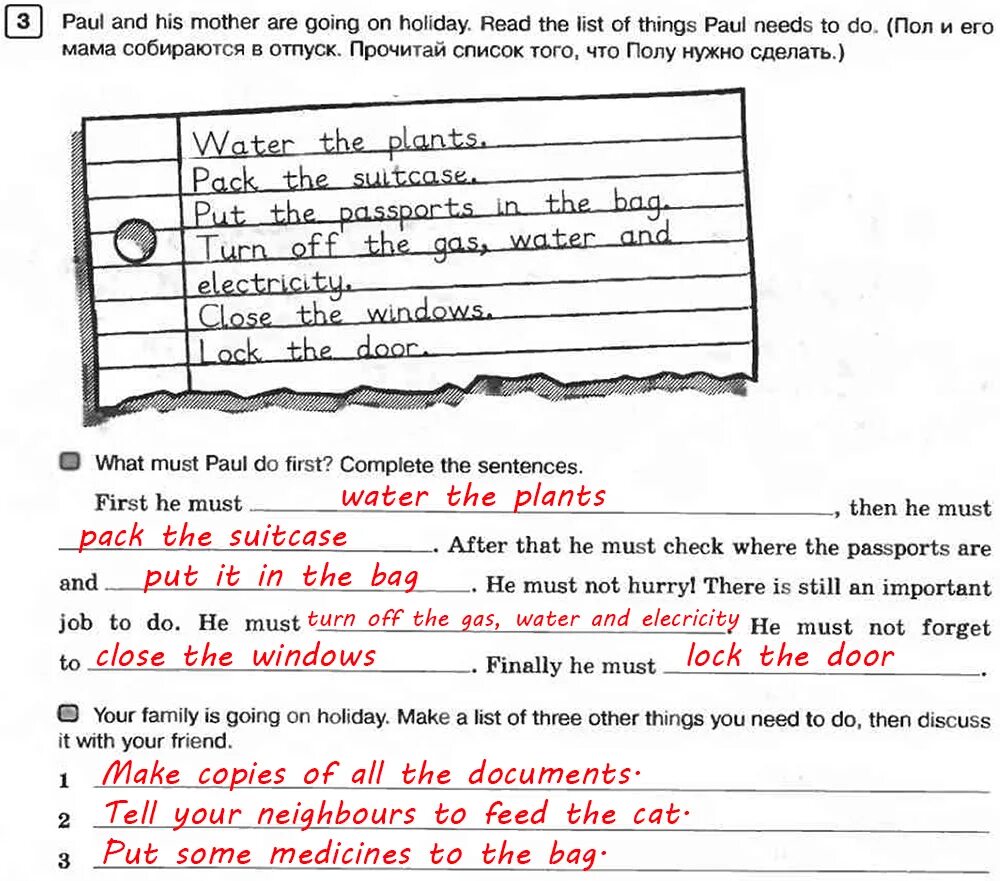 3 Paul and his mother are going on holiday. Read the list of things Paul needs to do. (Пол и его
мама собираются в отпуск. Прочитай список того, что Полу нужно сделать.)
Water the plants.
Pack the suitcase.
Put the passports in the bag.
Turn off the gas, water and
electricity.
Close the windows.
Lock the door.
What must Paul do first? Complete the sentences.
First he must water the plants, then he must
pack the suitcase. After that he must check where the passports are
and put it in the bag. He must not hurry! There is still an important
job to do. He must turn off the gas, water and elecricity. He must not forget
to close the windows. Finally he must lock the door.
Your family is going on holiday. Make a list of three other things you need to do, then discuss
it with your friend.
1 Make copies of all the documents.
2 Tell your neighbours to feed the cat.
3 Put some medicines to the bag.